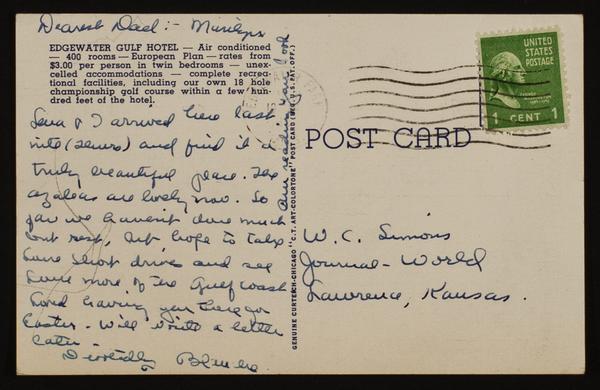 Dearest Dad :- Marilyn
EDGEWATER GULF HOTEL — Air conditioned
— 400 rooms — European Plan — rates from
$3.00 per person in twin bedrooms — unex-
celled accommodations — complete recrea-
tional facilities, including our own 18 hole
championship golf course within a few hun-
dred feet of the hotel.
I arrived here last
nite and find it a
truly beautiful place. The
azaleas are lovely now. So
far we haven't done much
but rest, but hope to take
some short drives and see
some more of the Gulf coast
having you there for
Easter. Will write a letter
later.
Devotedly Blanche
am reading your book
GENUINE CURTEICH-CHICAGO "C.T. ART-COLORTONE" POST CARD (REG. U.S. PAT. OFF.)
POST CARD
UNITED
STATES
POSTAGE
1 CENT 1
W. C. Simons
Journal-World
Lawrence, Kansas.